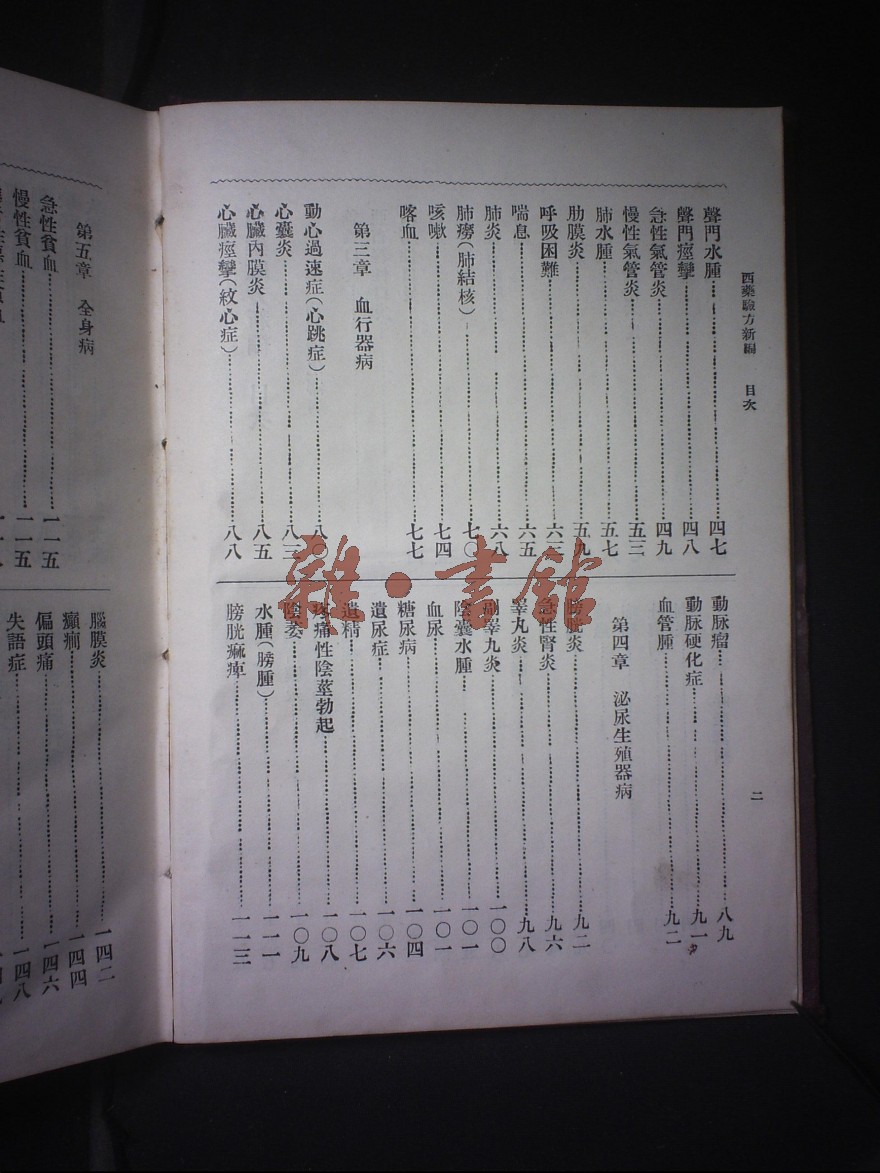 西藥驗方新編 目次
二
聲門水腫 四七
聲門痙攣 四八
急性氣管炎 四九
慢性氣管炎 五三
肺水腫 五七
肋膜炎 五九
呼吸困難
喘息 六五
肺炎 六八
肺癆(肺結核) 七〇
咳嗽 七四
喀血 七七
第三章 血行器病
動心過速症(心跳症) 八〇
心囊炎 八三
心臟內膜炎 八五
心臟痙攣(紋心症) 八八
動脈瘤 八九
動脈硬化症 九一
血管腫 九二
第四章 泌尿生殖器病
膀胱炎 九二
急性腎炎 九六
睾丸炎 九八
副睾丸炎 一〇〇
陰囊水腫 一〇一
血尿 一〇一
糖尿病 一〇四
遺尿症 一〇六
遺精 一〇七
疼痛性陰莖勃起 一〇八
陰萎 一〇九
水腫(膀腫) 一一一
膀胱痲痺 一一三
第五章 全身病
急性貧血 一一五
慢性貧血 一一五
腦膜炎 一四二
癲癇 一四四
偏頭痛 一四六
失語症 一四八
雜·書館